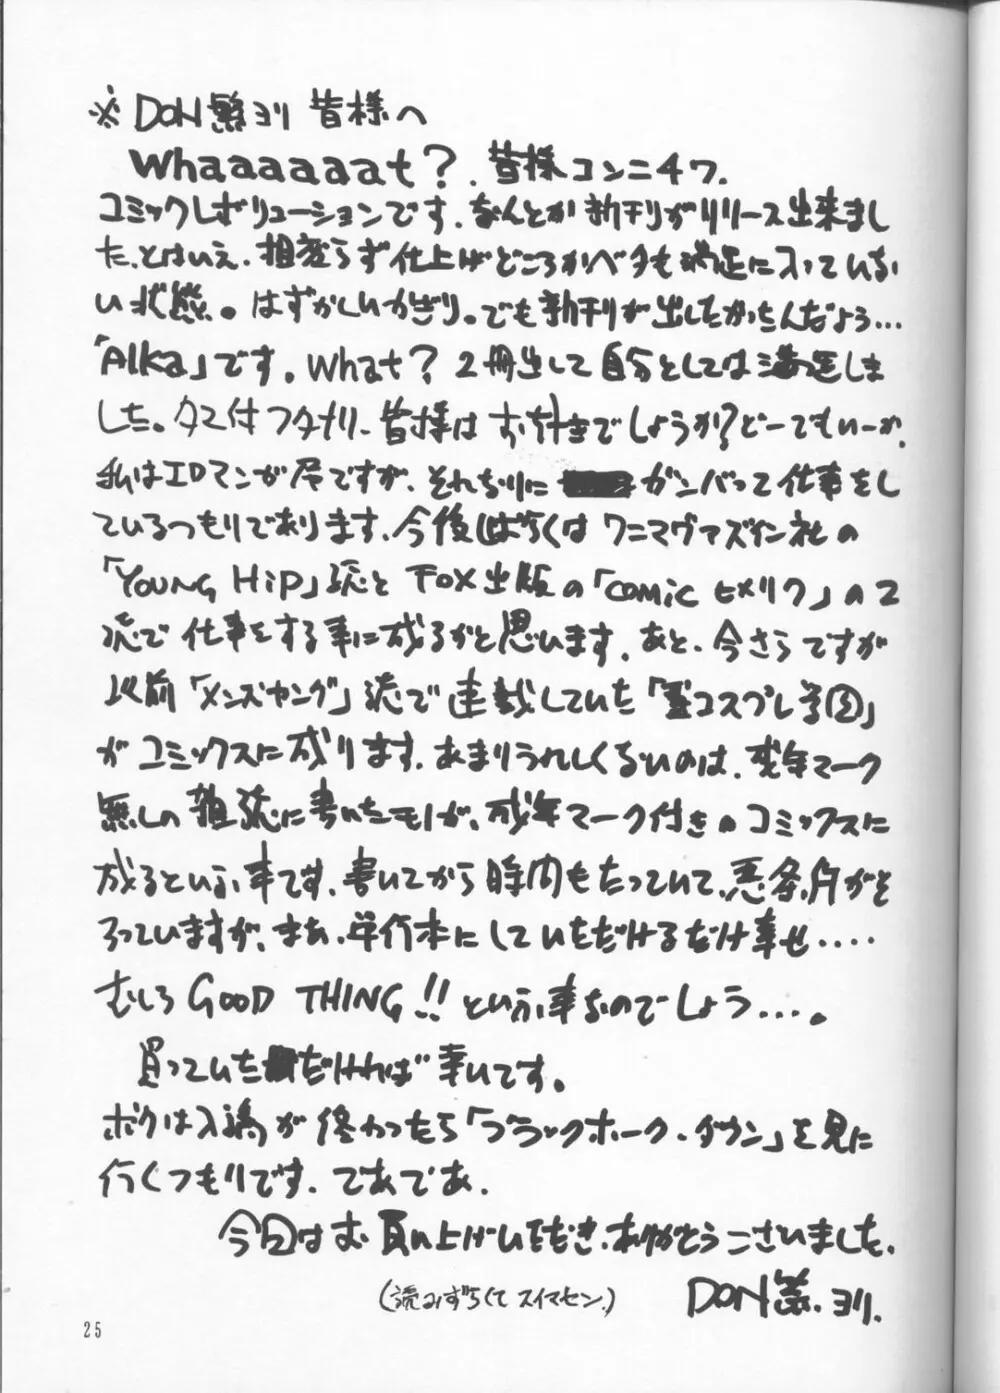 ※DON繁ヨリ 皆様へ
Whaaaaaat?. 皆様コンニチワ.
コミックレボリューションです. なんとか新刊がリリース出来まし
た. とはいえ. 相変らず仕上げどころかベタも満足に入っていな
い状態。はずかしいかぎり。でも新刊が出したかったんだよう...
「Alka」です。What? 2冊出して自分としては満足しま
した。タマ付フタナリ. 皆様はお好きでしょうか? どーでもいーか.
私はエロマンガ屋ですが. それなりに ガンバって仕事をし
ているつもりであります. 今後しばらくは ワニマガズイン社の
「YOUNG HiP」誌と FOX出版の「comic ヒメクリ」の2
誌で 仕事をする事に成るかと思います. あと、今さらですが
以前「メンズヤング」誌で連載していた「コスプレ学園」
がコミックスに成ります. あまりうれしくないのは. 成年マーク
無しの雑誌に書いたモノが、成年マーク付きのコミックスに
成るという事です. 書いてから時間もたっていて、悪条件がそ
ろっていますが、まあ. 単行本にしていただけるだけ幸せ....
むしろ GOOD THING!! という事なのでしょう....。
買っていただければ 幸いです。
ボクは入稿が終わったら「ブラックホーク・ダウン」を見に
行くつもりです. であであ.
今回はお買い上げいただき、ありがとうございました.
(読みずらくて スイマセン.)
DON繁.ヨリ.
25